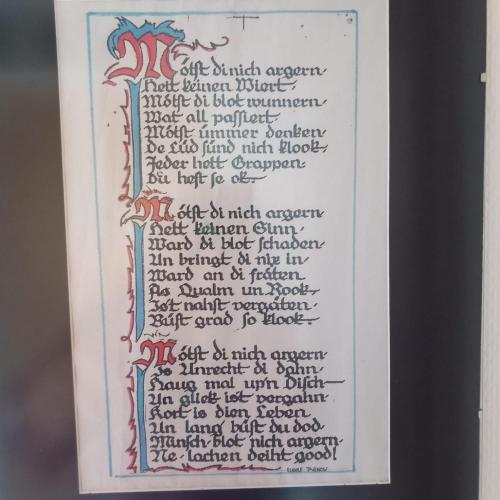 Mötst di nich argern,
Hett keinen Wiert,
Mötst di blot wunnern,
Wat all passiert.
Mötst ümmer denken
de Lüd sünd nich klook,
Jeder hett Grappen,
Du hest se ok.
Mötst di nich argern,
Hett keinen Sinn,
Ward di blot schaden,
Un bringt di nix in
Ward an di fräten
As Qualm un Rook,
Ist nahst vergäten,
Büst grad so klook.
Mötst di nich argern
is Unrecht di dahn,
Haug mal up'n Disch
Un gliek ist vergahn
Kort is dien Leben
Un lang büst du dod
Minsch blot nich argern,
Ne, lachen deiht good!